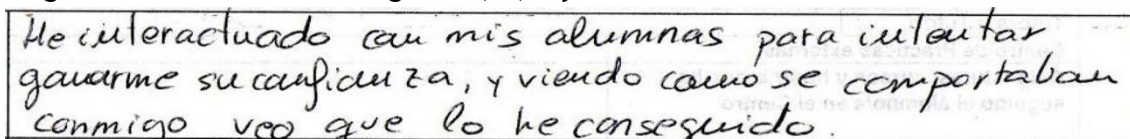 He interactuado con mis alumnas para intentar
ganarme su confianza, y viendo como se comportaban
conmigo veo que lo he conseguido.